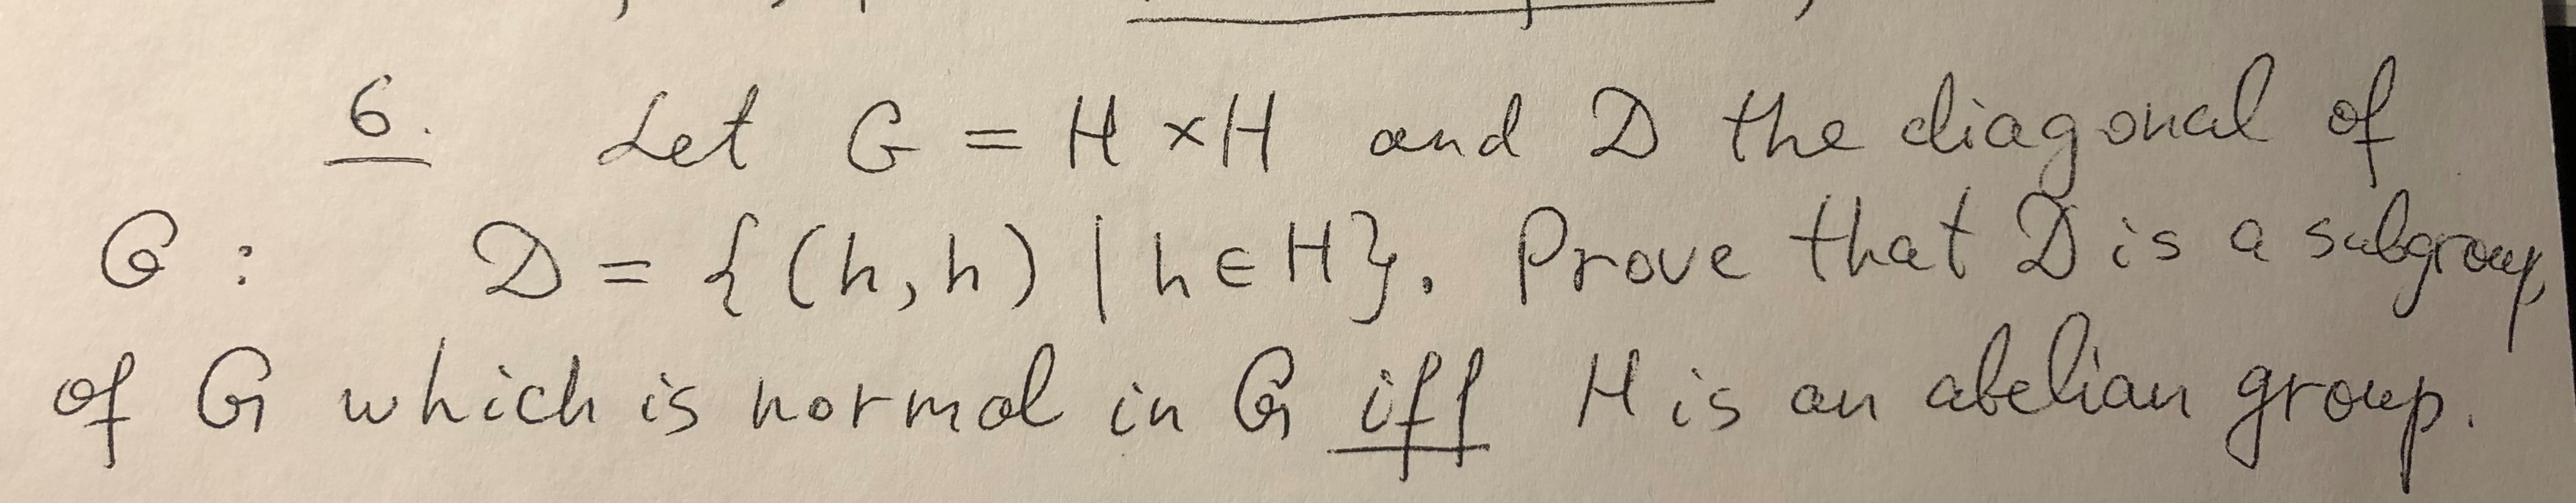 6. Let G = H × H and D the diagonal of
G : D = {(h, h) | h ∈ H}. Prove that D is a subgroup
of G which is normal in G iff H is an abelian group.